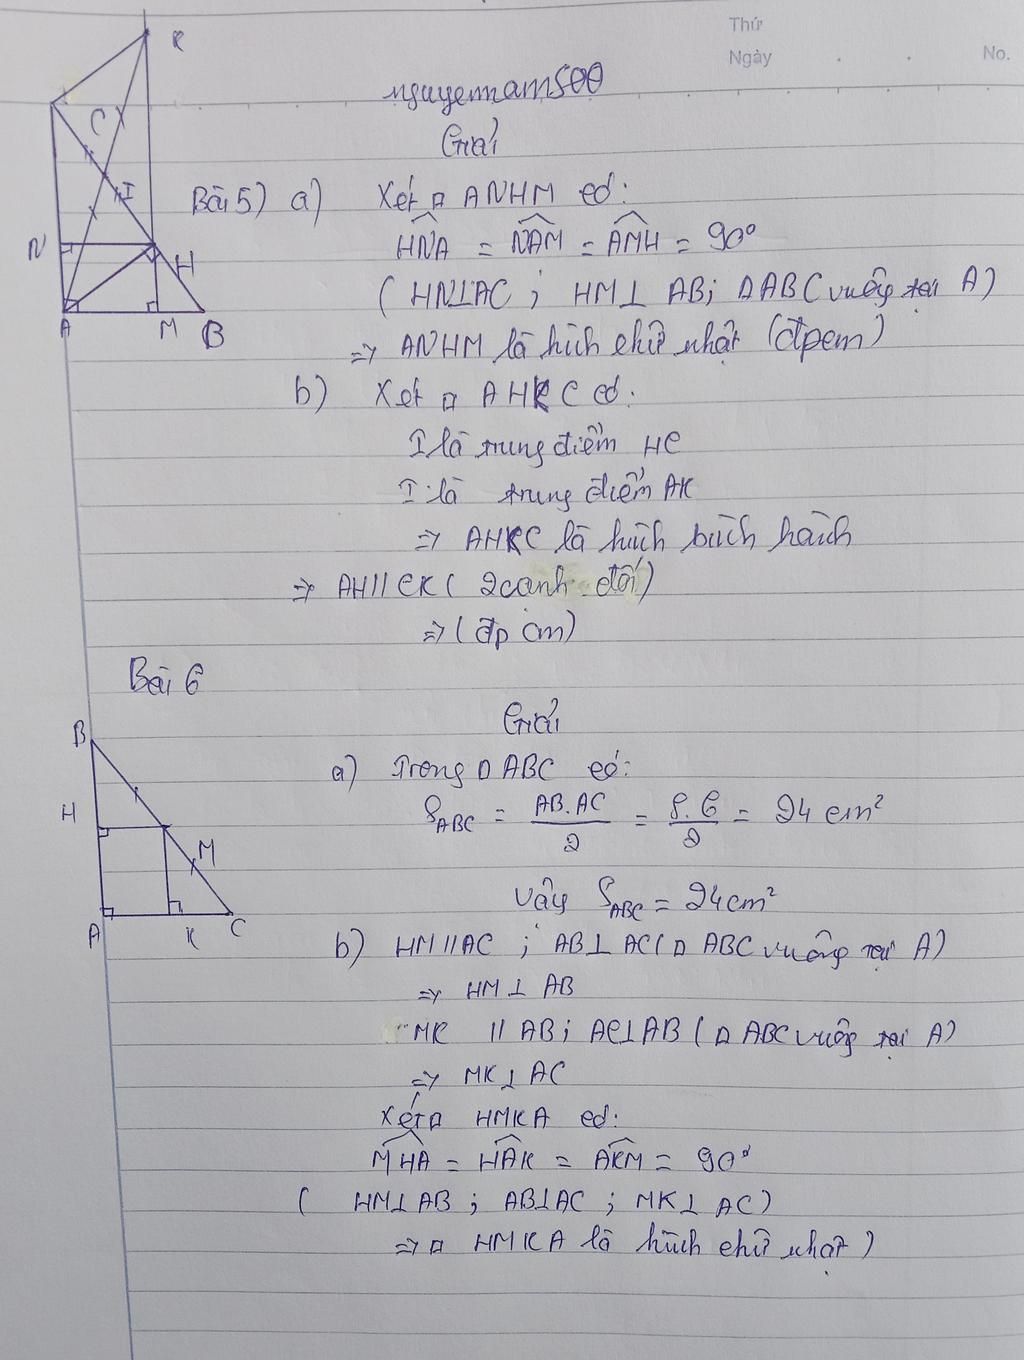 Thứ
Ngày
No.
nguyennam500
Giải
K
C
I
N
H
A
M
B
Bài 5) a) Xét □ ANHM có:
HNA = NAM = AMH = 90°
( HN⊥AC ; HM⊥ AB; ΔABC vuông tại A)
=> ANHM là hình chữ nhật (đpcm)
b) Xét □ AHKC có:
I là trung điểm HC
I là trung điểm AK
=> AHKC là hình bình hành
=> AH // CK ( 2 cạnh đối)
=> (đpcm)
Bài 6
Giải
B
H
M
A
K
C
a) Trong Δ ABC có:
S_ABC = AB.AC/2 = 8.6/2 = 24 cm²
Vậy S_ABC = 24cm²
b) HM // AC ; AB⊥ AC (Δ ABC vuông tại A)
=> HM ⊥ AB
MK // AB; AC⊥AB (Δ ABC vuông tại A)
=> MK⊥ AC
Xét □ HMKA có:
MHA = HAK = AKM = 90°
( HM⊥AB ; AB⊥AC ; MK⊥ AC)
=> □ HMKA là hình chữ nhật )